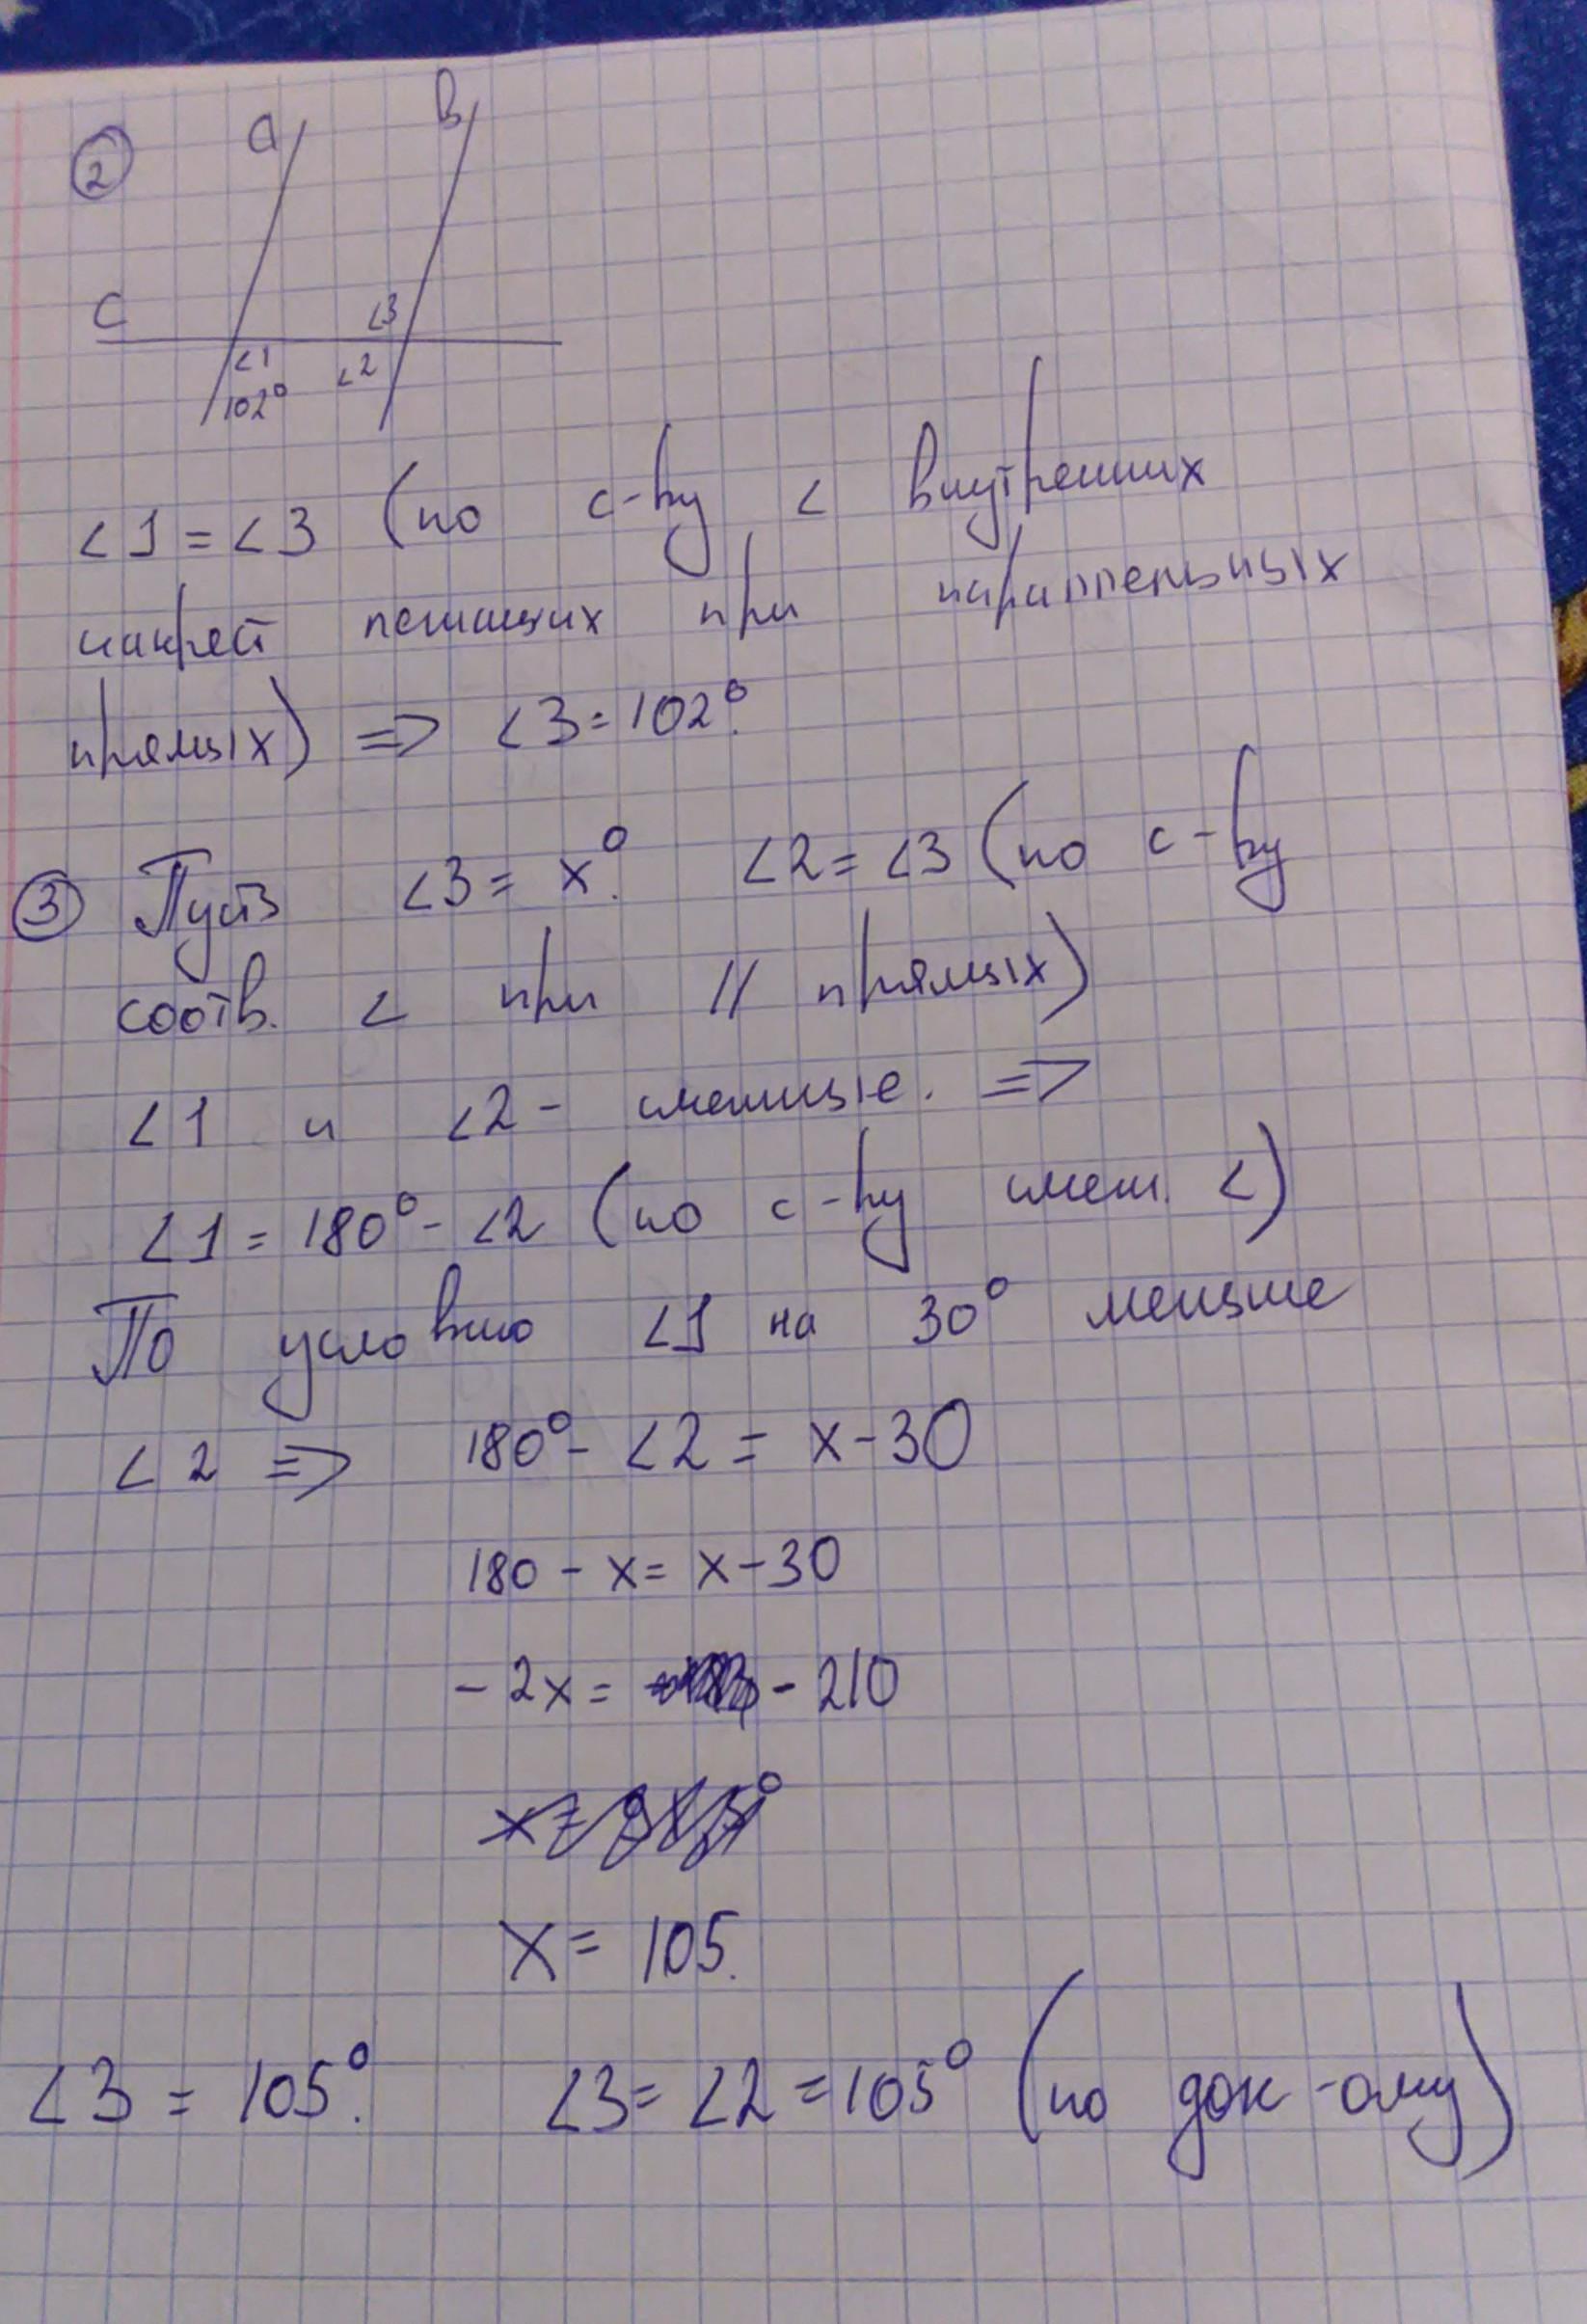 2
a
b
c
∠3
∠1
∠2
102°
∠1 = ∠3 (по с-ву ∠ внутренних
накрест лежащих при параллельных
прямых) => ∠3 = 102°.
3 Пусть ∠3 = x°. ∠2 = ∠3 (по с-ву
соотв. ∠ при // прямых)
∠1 и ∠2 - смежные. =>
∠1 = 180° - ∠2 (по с-ву смеж. ∠)
По условию ∠1 на 30° меньше
∠2 => 180° - ∠2 = x - 30
180 - x = x - 30
- 2x = - 210
x = 105.
∠3 = 105°. ∠3 = ∠2 = 105° (по док-ому)